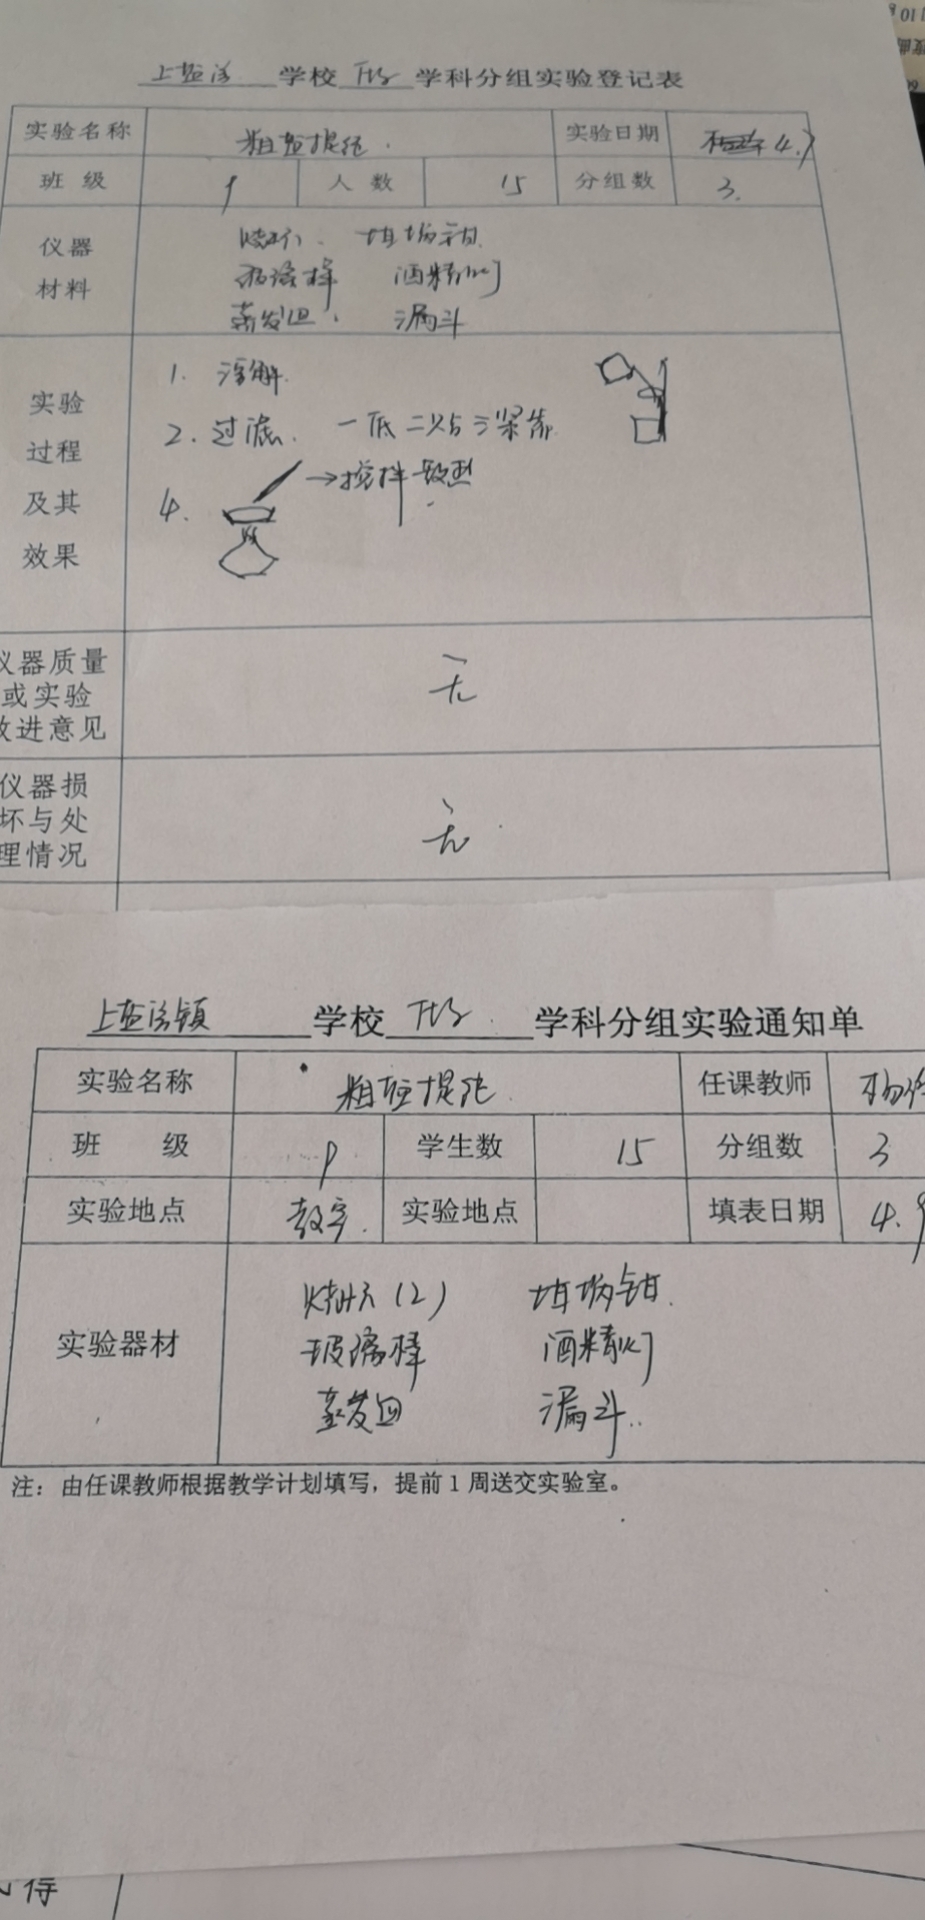 上盐汶 学校 化学 学科分组实验登记表
实验名称 粗盐提纯 实验日期 4.7
班级 9 人数 15 分组数 3.
仪器材料 烧杯、 坩埚钳
玻璃棒 酒精灯
蒸发皿 漏斗
实验过程及其效果
1. 溶解.
2. 过滤. 一低二贴三紧靠.
4. →搅拌散热
仪器质量
或实验
改进意见
无
仪器损
坏与处
理情况
无
上盐汶镇 学校 化学 学科分组实验通知单
实验名称 粗盐提纯 任课教师
班 级 9 学生数 15 分组数 3
实验地点 教室. 实验地点 填表日期 4.9
实验器材 烧杯(2) 坩埚钳.
玻璃棒 酒精灯
蒸发皿 漏斗..
注：由任课教师根据教学计划填写，提前1周送交实验室。
得